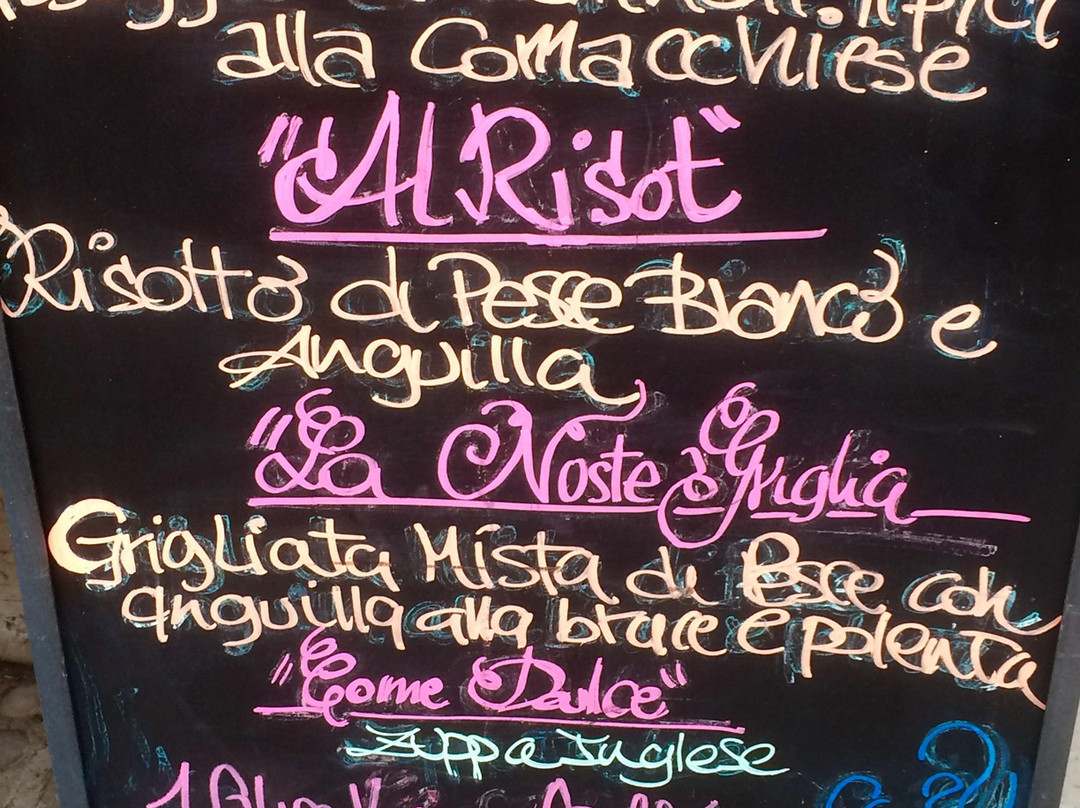 alla Comacchiese
"Al Risot"
Risotto di Pesce Bianco e
Anguilla
"La Noste Griglia
Grigliata Mista di Pesce con
anguilla alla brace e polenta
"Come Dulce"
Zuppa Inglese